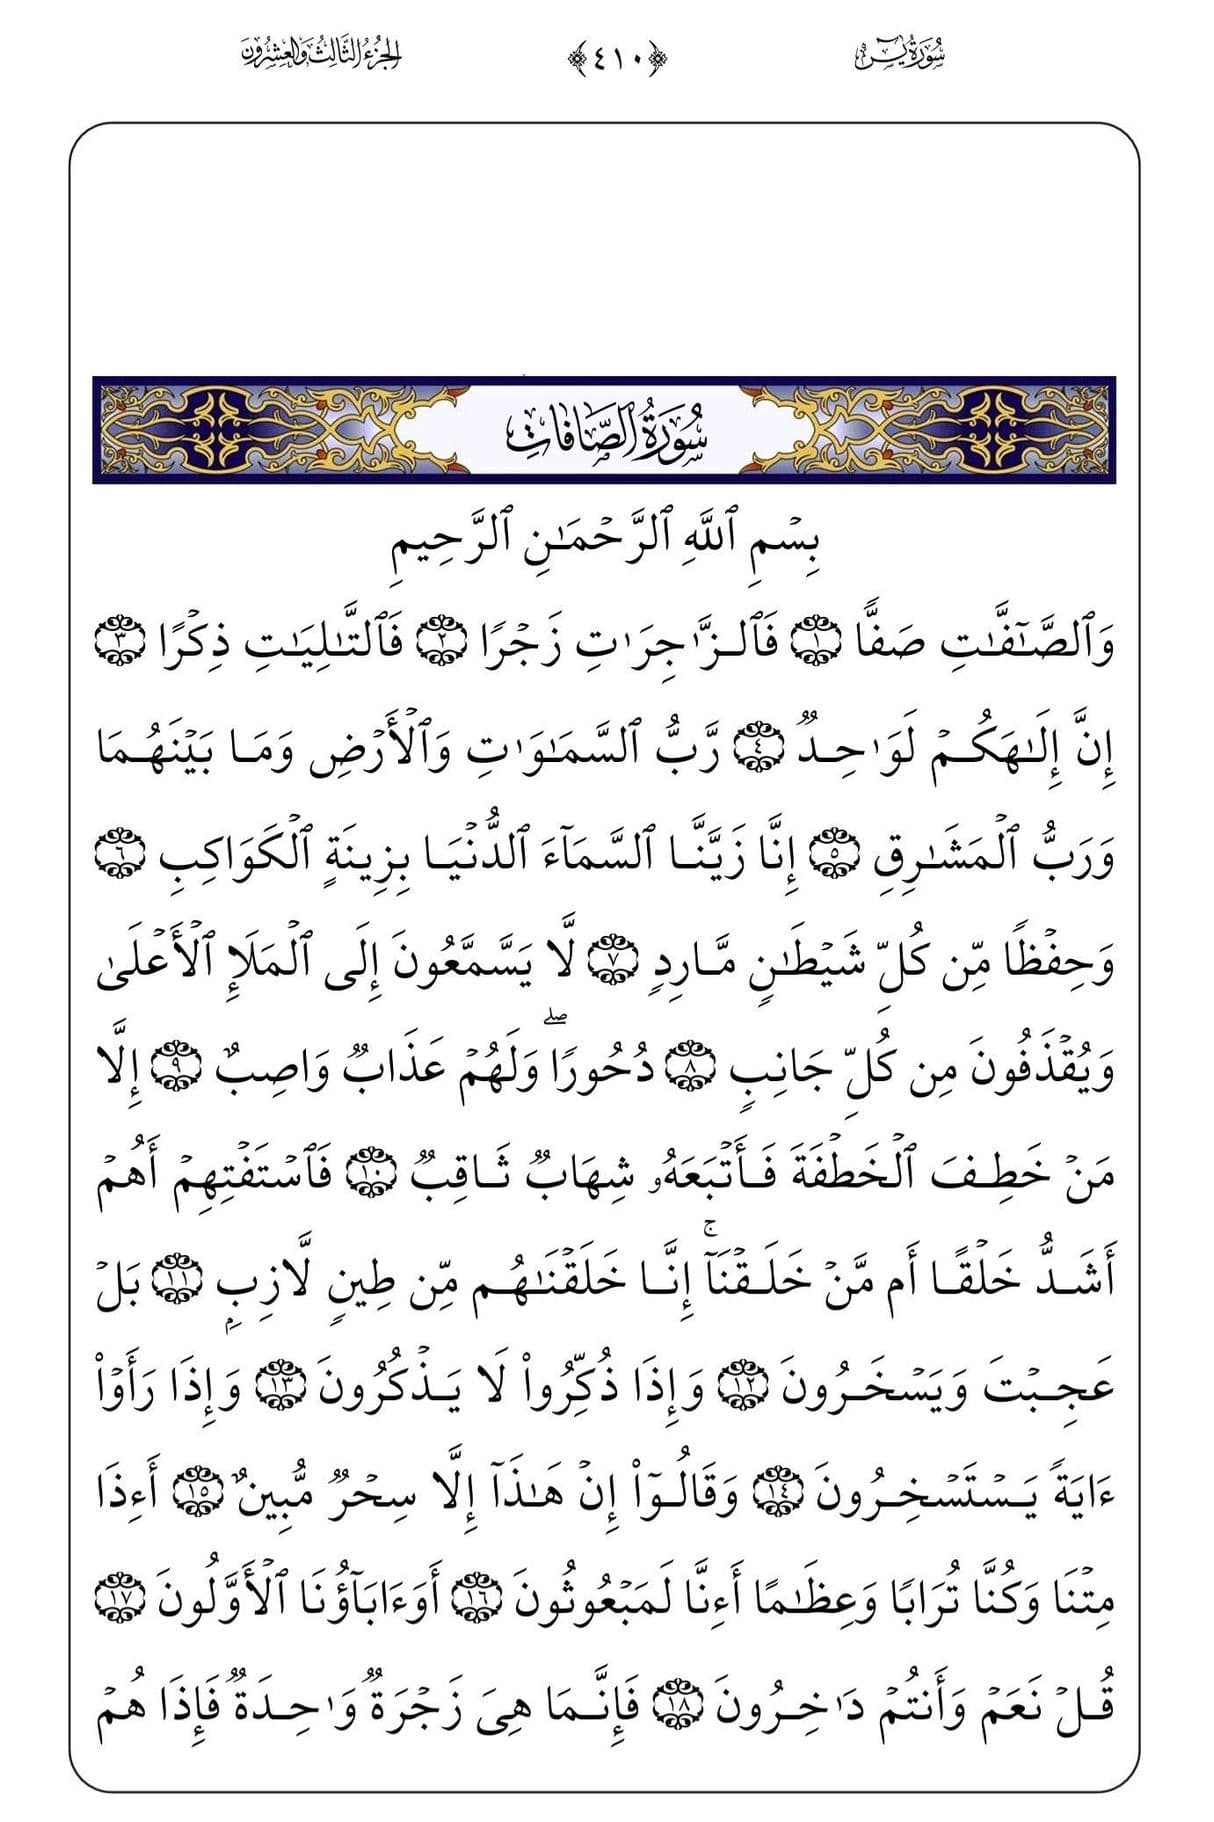 سُورَةُ يسٓ ﴿٤١٠﴾ الجُزْءُ الثَّالِثُ وَالعِشْرُونَ
سُورَةُ الصَّافَّاتِ
بِسۡمِ ٱللَّهِ ٱلرَّحۡمَٰنِ ٱلرَّحِيمِ
وَٱلصَّٰٓفَّٰتِ صَفّٗا ١ فَٱلزَّٰجِرَٰتِ زَجۡرٗا ٢ فَٱلتَّٰلِيَٰتِ ذِكۡرًا ٣
إِنَّ إِلَٰهَكُمۡ لَوَٰحِدٞ ٤ رَّبُّ ٱلسَّمَٰوَٰتِ وَٱلۡأَرۡضِ وَمَا بَيۡنَهُمَا
وَرَبُّ ٱلۡمَشَٰرِقِ ٥ إِنَّا زَيَّنَّا ٱلسَّمَآءَ ٱلدُّنۡيَا بِزِينَةٍ ٱلۡكَوَاكِبِ ٦
وَحِفۡظٗا مِّن كُلِّ شَيۡطَٰنٖ مَّارِدٖ ٧ لَّا يَسَّمَّعُونَ إِلَى ٱلۡمَلَإِ ٱلۡأَعۡلَىٰ
وَيُقۡذَفُونَ مِن كُلِّ جَانِبٖ ٨ دُحُورٗاۖ وَلَهُمۡ عَذَابٞ وَاصِبٌ ٩ إِلَّا
مَنۡ خَطِفَ ٱلۡخَطۡفَةَ فَأَتۡبَعَهُۥ شِهَابٞ ثَاقِبٞ ١٠ فَٱسۡتَفۡتِهِمۡ أَهُمۡ
أَشَدُّ خَلۡقًا أَم مَّنۡ خَلَقۡنَآۚ إِنَّا خَلَقۡنَٰهُم مِّن طِينٖ لَّازِبِۭ ١١ بَلۡ
عَجِبۡتَ وَيَسۡخَرُونَ ١٢ وَإِذَا ذُكِّرُواْ لَا يَذۡكُرُونَ ١٣ وَإِذَا رَأَوۡاْ
ءَايَةٗ يَسۡتَسۡخِرُونَ ١٤ وَقَالُوٓاْ إِنۡ هَٰذَآ إِلَّا سِحۡرٞ مُّبِينٌ ١٥ أَءِذَا
مِتۡنَا وَكُنَّا تُرَابٗا وَعِظَٰمًا أَءِنَّا لَمَبۡعُوثُونَ ١٦ أَوَءَابَآؤُنَا ٱلۡأَوَّلُونَ ١٧
قُلۡ نَعَمۡ وَأَنتُمۡ دَٰخِرُونَ ١٨ فَإِنَّمَا هِيَ زَجۡرَةٞ وَٰحِدَةٞ فَإِذَا هُمۡ